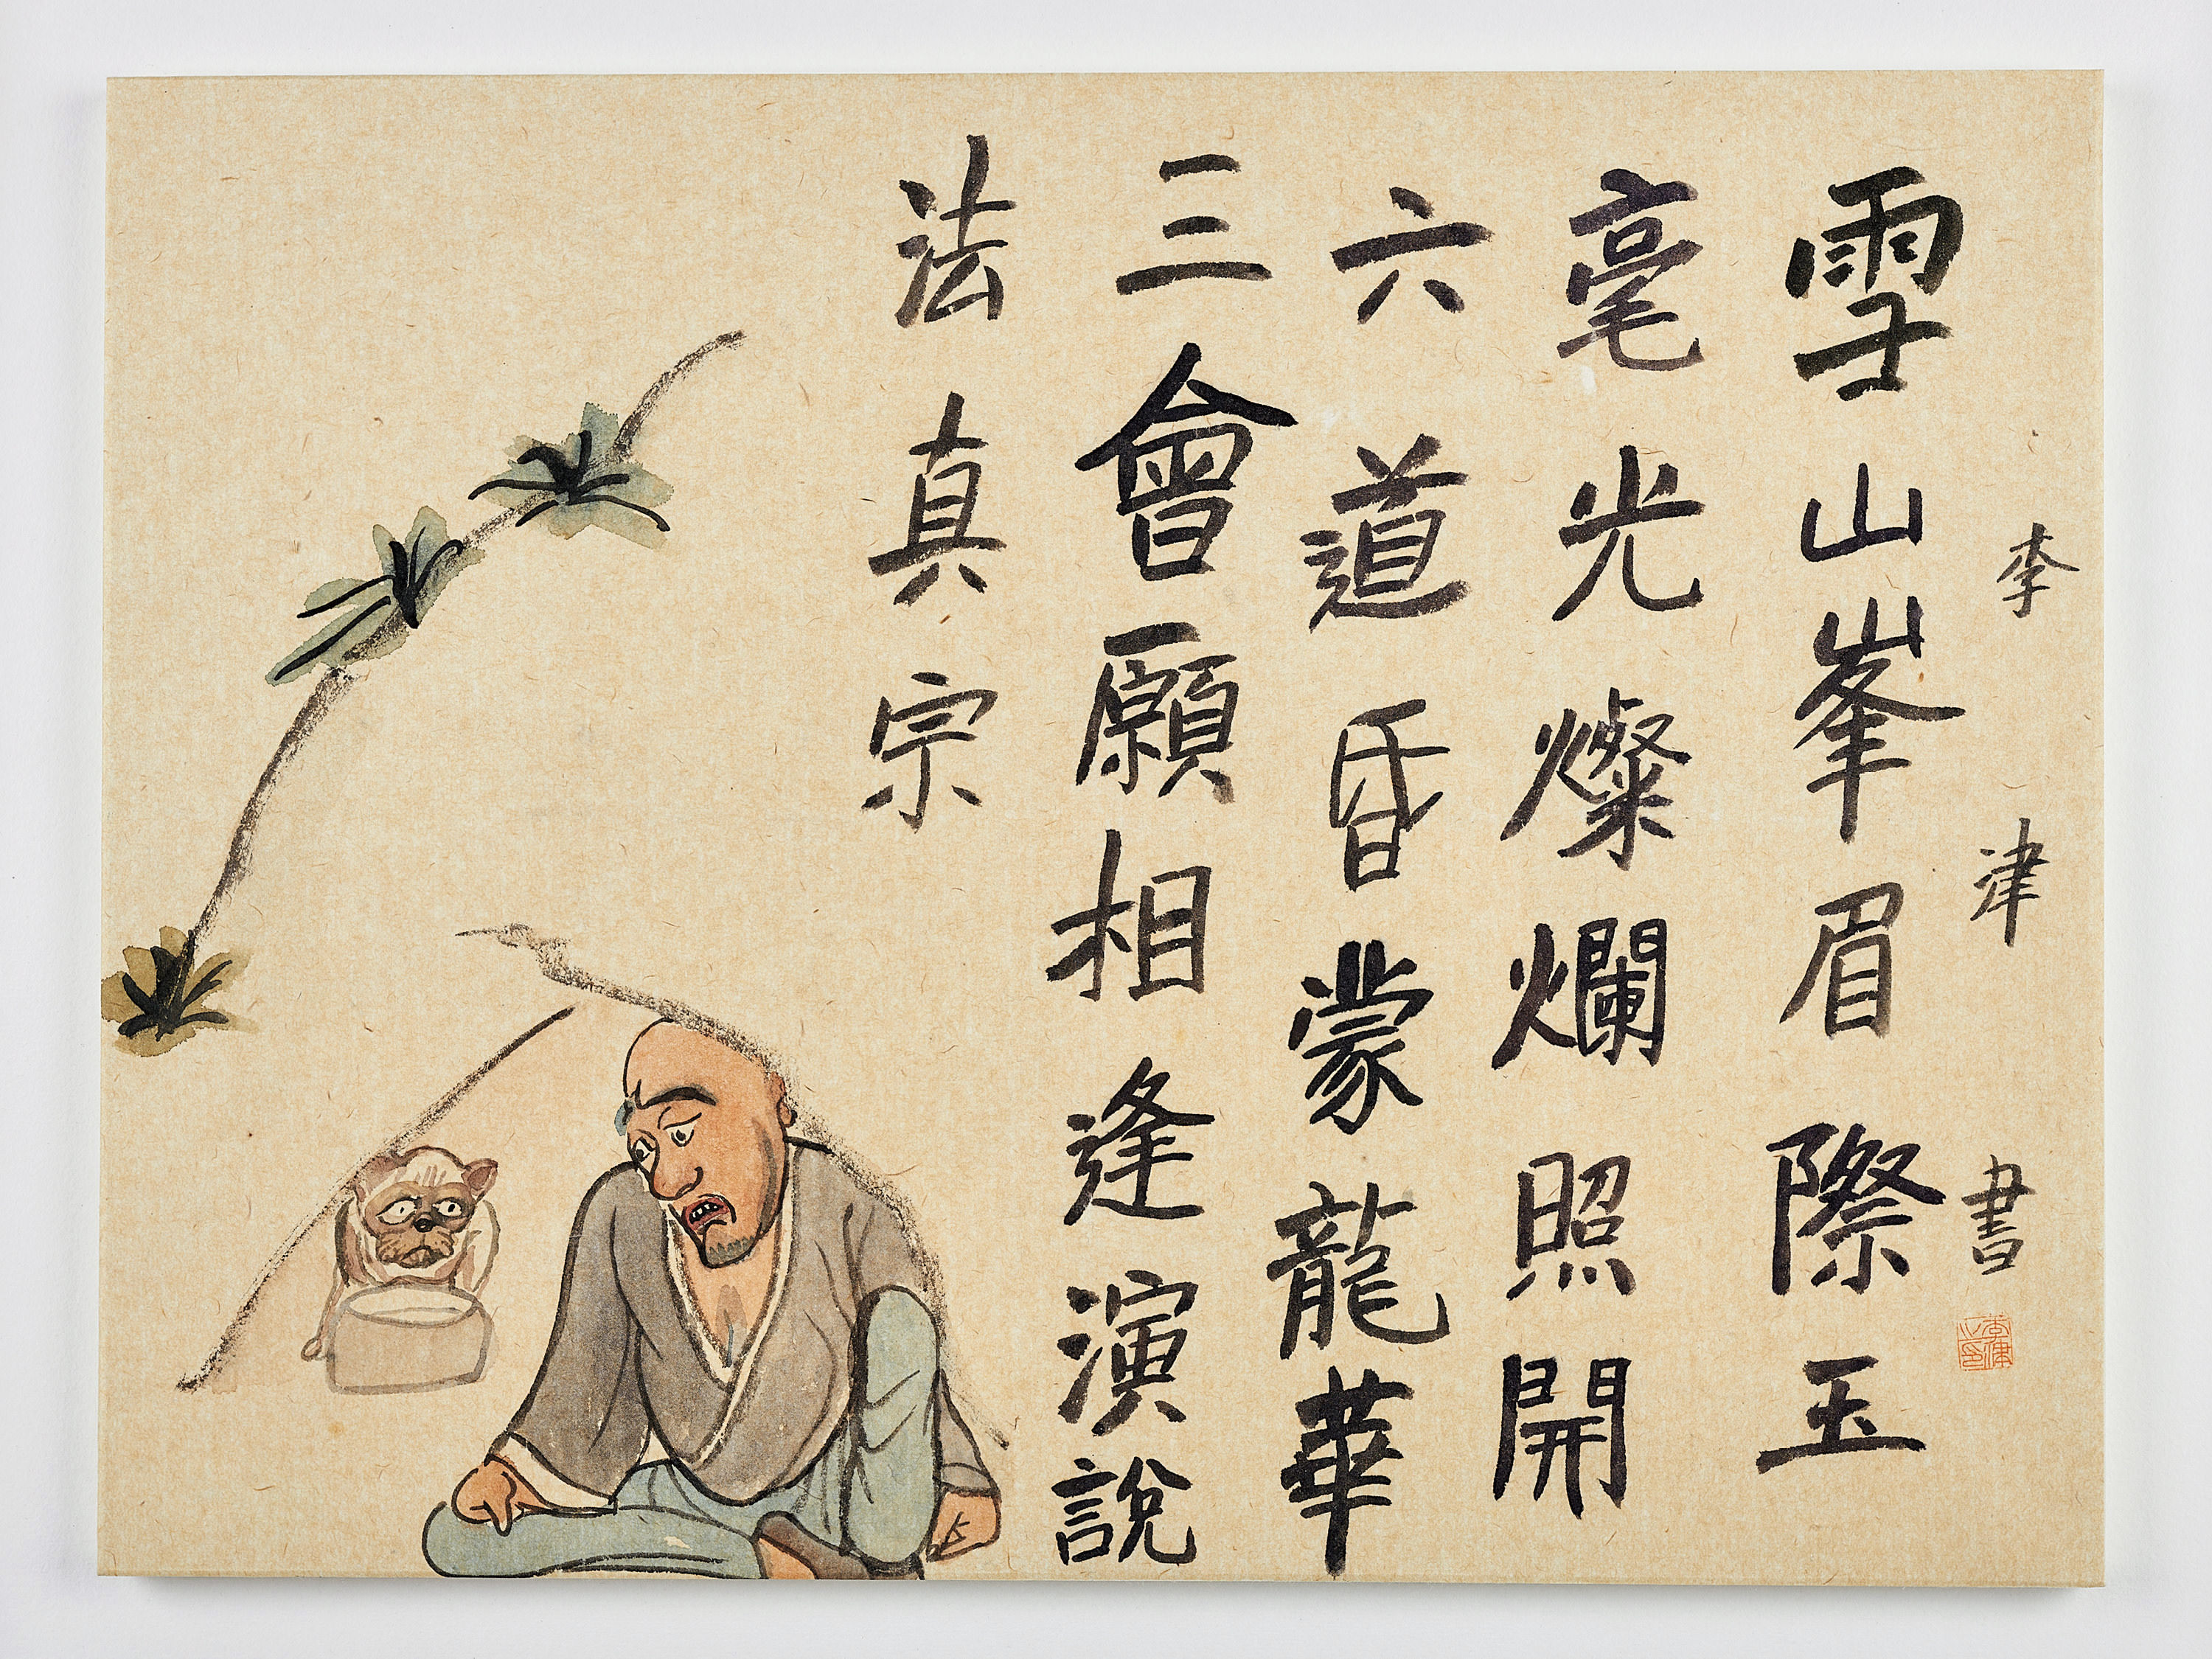 李津書
李津之印
雪山峯眉際玉
毫光燦爛照開
六道昏蒙龍華
三會願相逢演說
法真宗